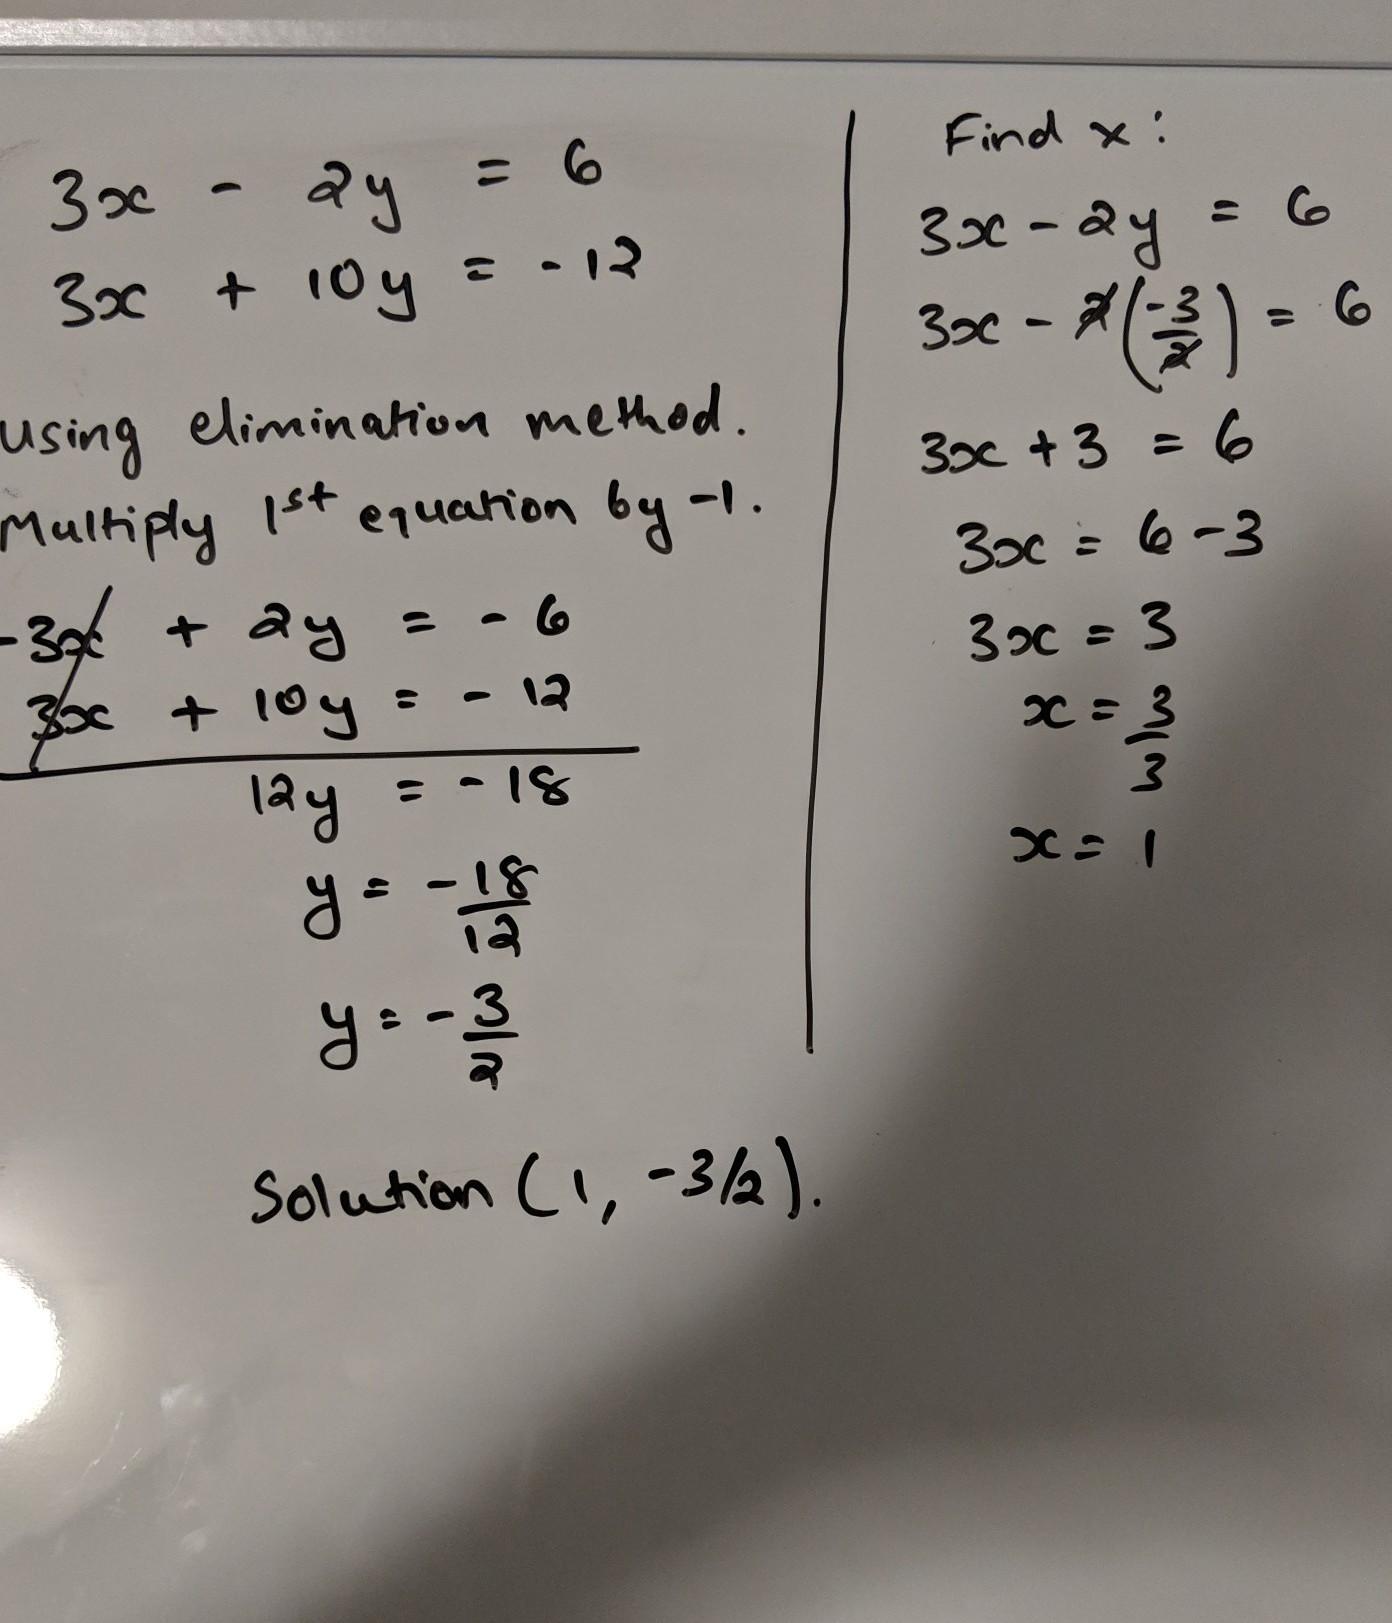 3x - 2y = 6
3x + 10y = -12
using elimination method.
Multiply 1st equation by -1.
-3x + 2y = -6
3x + 10y = -12
12y = -18
y = -18/12
y = -3/2
Find x:
3x - 2y = 6
3x - 2(-3/2) = 6
3x + 3 = 6
3x = 6 - 3
3x = 3
x = 3/3
x = 1
Solution (1, -3/2).